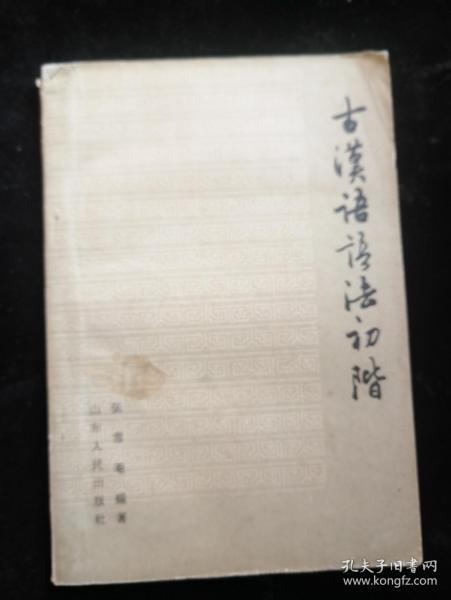 古漢語語法初階
张雪菴编著
山东人民出版社
孔夫子旧书网
www.kongfz.com